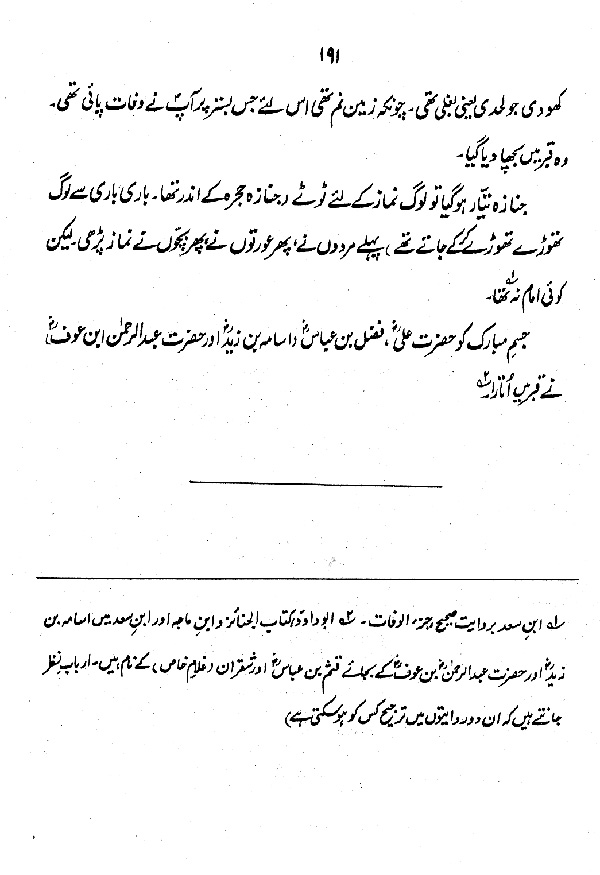 ۱۹۱
کھودی جو لحدی یعنی بغلی تھی۔ چونکہ زمین نم تھی اس لئے جس بستر پر آپؐ نے وفات پائی تھی۔
وہ قبر میں بچھا دیا گیا۔
جنازہ تیّار ہو گیا تو لوگ نماز کے لئے ٹوٹے (جنازہ حجرہ کے اندر تھا۔ باری باری سے لوگ
تھوڑے تھوڑے کرکے جاتے تھے) پہلے مردوں نے، پھر عورتوں نے، پھر بچّوں نے نماز پڑھی لیکن
کوئی امام نہ تھا۔ ؎۱
جسمِ مبارک کو حضرت علیؓ، فضل بن عباسؓ، اسامہ بن زیدؓ اور حضرت عبدالرحمٰن ابن عوفؓ
نے قبر میں اُتارا۔ ؎۲
؎۱ ابن سعد بروایت صحیح جزء الوفات۔ ؎۲ ابو داود کتاب الجنائز و ابن ماجہ اور ابن سعد میں اسامہ بن
زیدؓ اور حضرت عبدالرحمٰنؓ بن عوفؓ کے بجائے قثم بن عباسؓ اور شقران (غلام خاص) کے نام ہیں۔ ارباب نظر
جانتے ہیں کہ ان دو روایتوں میں ترجیح کس کو ہو سکتی ہے)